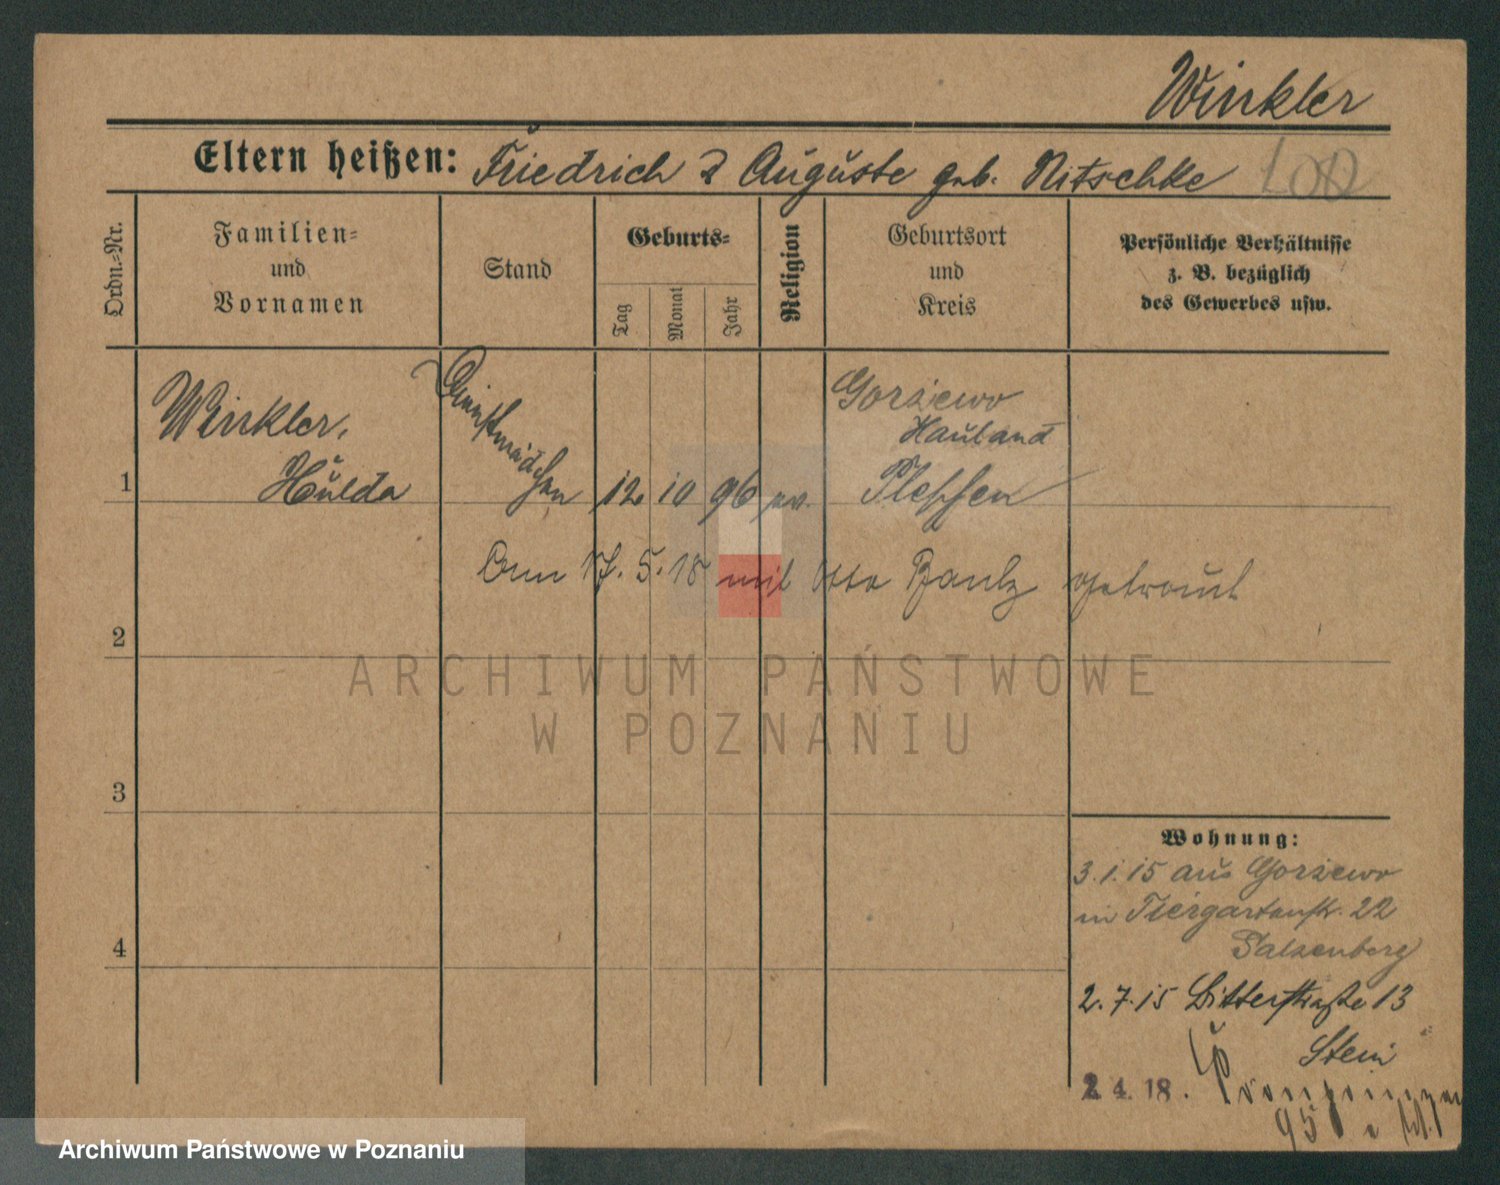 Winkler
Eltern heißen: Friedrich & Auguste geb. Nitschke
Ordn.-Nr.
Familien-
und
Vornamen
Stand
Geburts-
Tag
Monat
Jahr
Religion
Geburtsort
und
Kreis
Persönliche Verhältnisse
z. B. bezüglich
des Gewerbes usw.
1
Winkler,
Hulda
Dienstmädchen
12 10 96 ev.
Gorzewo
Hauland
Pleschen
2
17. 5. 18 mit Otto getraut
ARCHIWUM PAŃSTWOWE
W POZNANIU
3
4
Wohnung:
3.1.15 aus Gorzewo
in Tiergartenstr. 22
Salzenberg
2.7.15 Bitterstraße 13
Stein
2. 4. 18.
95
Archiwum Państwowe w Poznaniu